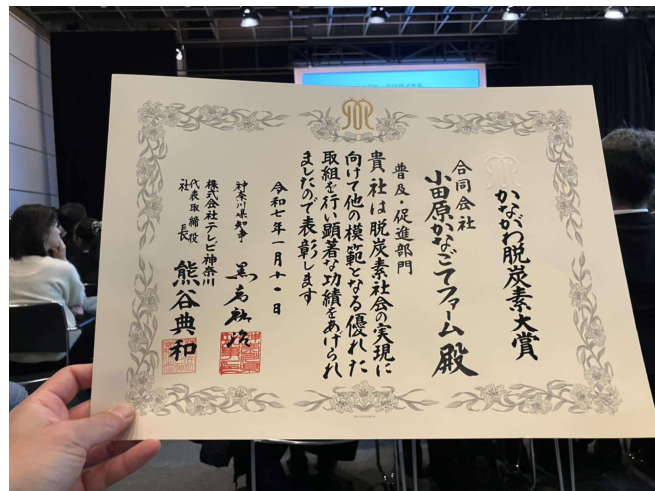 かながわ脱炭素大賞
合同会社
小田原かなごてファーム 殿
普及・促進部門
貴社は脱炭素社会の実現に
向けて他の模範となる優れた
取組を行い顕著な功績をあげられ
ましたので表彰します
令和七年一月
神奈川県知事 黒岩祐治
株式会社テレビ神奈川
代表取締役
社長 熊谷典和